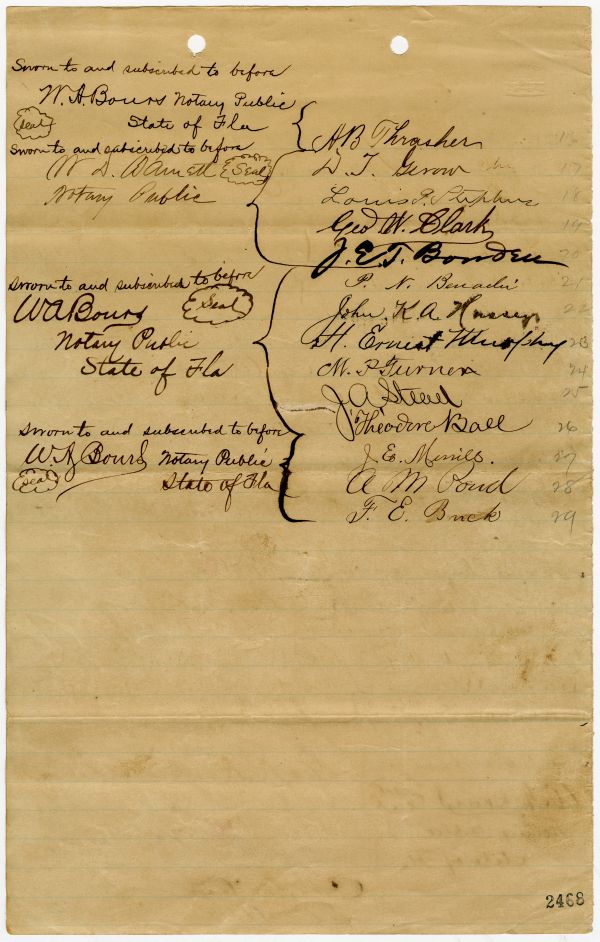 Sworn to and subscribed to before
W. A. Bours Notary Public
Seal State of Fla
A B Thrasher 16
Sworn to and subscribed to before
W D Barnett Seal
D. T. Gerow 17
Notary Public
Louis P. Stephens 18
Geo W. Clark 19
J. E. T. Bowden 20
Sworn to and subscribed to before
P. N. 21
W A Bours Seal
John K. A. 22
Notary Public
H. Ernest Murphy 23
State of Fla
M. P. Turner 24
J A Stead 25
Theodore Ball 26
Sworn to and subscribed to before
W A Bours Notary Public
J. E. Merrill. 27
Seal State of Fla
A M Pond 28
F. E. Buck 29
2468